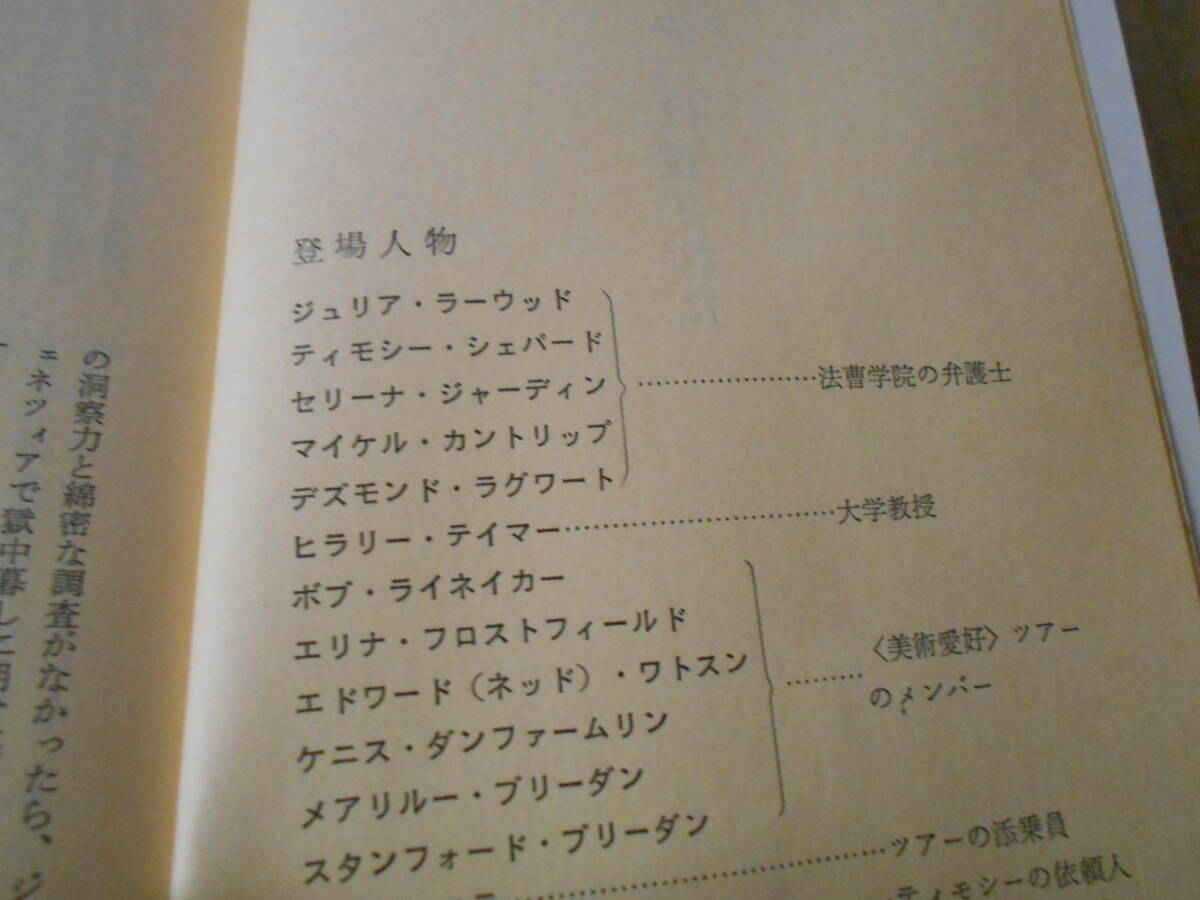 登場人物
ジュリア・ラーウッド
ティモシー・シェパード
セリーナ・ジャーディン
マイケル・カントリップ
デズモンド・ラグワート
法曹学院の弁護士
ヒラリー・テイマー……………………大学教授
ボブ・ライネイカー
エリナ・フロストフィールド
エドワード（ネッド）・ワトスン
ケニス・ダンファームリン
メアリルー・ブリーダン
スタンフォード・ブリーダン
〈美術愛好〉ツアー
のメンバー
ツアーの添乗員
ティモシーの依頼人
の洞察力と綿密な調査がなかったら、ジ
ェネツィアで獄中暮し